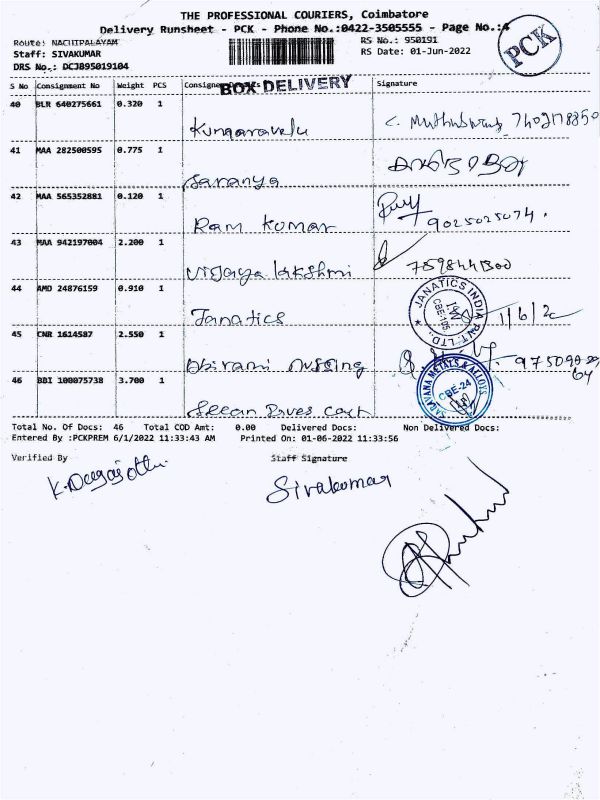 THE PROFESSIONAL COURIERS, Coimbatore
Delivery Runsheet - PCK - Phone No.:0422-3505555 - Page No.:4
PCK
Route: NACHIPALAYAM
Staff: SIVAKUMAR
DRS No.: DCJ895019104
RS No.: 950191
RS Date: 01-Jun-2022
S No Consignment No Weight PCS Consignee Signature
BOX DELIVERY
40 BLR 640275661 0.320 1
Kungaravelu
41 MAA 282500595 0.775 1
Saranya
42 MAA 565352881 0.120 1
Ram Kumar 9025025074.
43 MAA 942197004 2.200 1
Vijaya lakshmi
44 AMD 24876159 0.910 1
Janatics 1/6/2
JANATICS INDIA PVT. LTD., CBE-105
45 CNR 1614587 2.550 1
Abirami nursing
46 BBI 100075738 3.700 1
SARAVANA METALS & ALLOYS CBE-24
Total No. Of Docs: 46 Total COD Amt: 0.00 Delivered Docs: Non Delivered Docs:
Entered By :PCKPREM 6/1/2022 11:33:43 AM Printed On: 01-06-2022 11:33:56
Verified By Staff Signature
Sivakumar